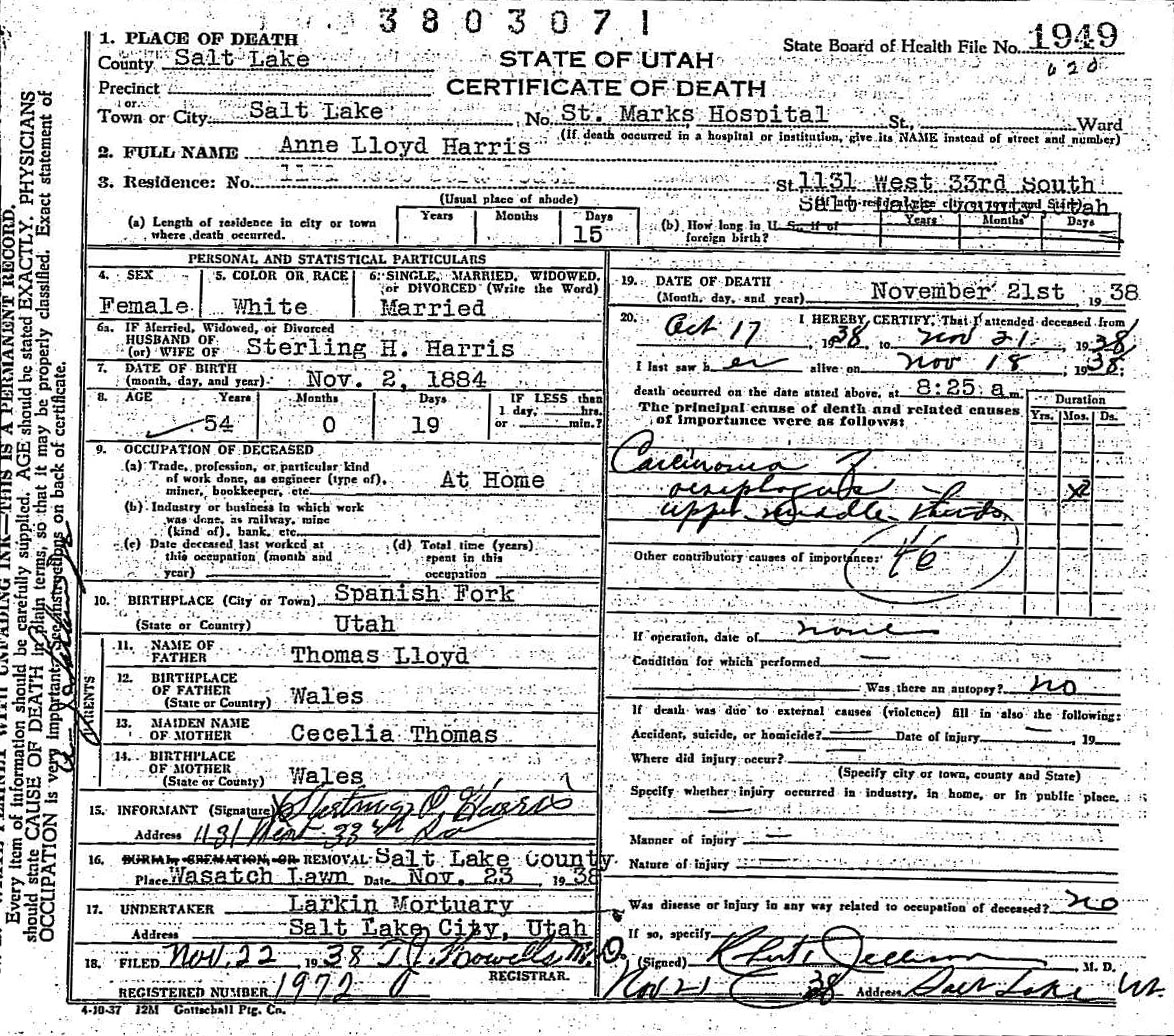 3803071
1. PLACE OF DEATH
County Salt Lake
STATE OF UTAH
State Board of Health File No. 1949
620
Precinct
CERTIFICATE OF DEATH
or
Town or City Salt Lake No. St. Marks Hospital St., Ward
(If death occurred in a hospital or institution, give its NAME instead of street and number)
2. FULL NAME Anne Lloyd Harris
3. Residence: No. St. 1131 West 33rd South
(Usual place of abode)
Salt Lake County Utah
(a) Length of residence in city or town where death occurred. Years Months Days 15
(b) How long in U. S., if of foreign birth? Years Months Days
PERSONAL AND STATISTICAL PARTICULARS
4. SEX Female
5. COLOR OR RACE White
6. SINGLE, MARRIED, WIDOWED, or DIVORCED (Write the Word) Married
6a. IF Married, Widowed, or Divorced
HUSBAND OF
(or) WIFE OF Sterling H. Harris
7. DATE OF BIRTH
(month, day, and year) Nov. 2, 1884
8. AGE Years 54 Months 0 Days 19
IF LESS than 1 day, hrs. or min.?
9. OCCUPATION OF DECEASED
(a) Trade, profession, or particular kind of work done, as engineer (type of), miner, bookkeeper, etc. At Home
(b) Industry or business in which work was done, as railway, mine (kind of), bank, etc.
(c) Date deceased last worked at this occupation (month and year)
(d) Total time (years) spent in this occupation
10. BIRTHPLACE (City or Town) Spanish Fork
(State or Country) Utah
PARENTS
11. NAME OF FATHER Thomas Lloyd
12. BIRTHPLACE OF FATHER
(State or Country) Wales
13. MAIDEN NAME OF MOTHER Cecelia Thomas
14. BIRTHPLACE OF MOTHER
(State or Country) Wales
15. INFORMANT (Signature) Harris
Address 1131 West 33rd So
16. BURIAL, CREMATION, OR REMOVAL Salt Lake County
Place Wasatch Lawn Date Nov. 23 1938
17. UNDERTAKER Larkin Mortuary
Address Salt Lake City, Utah
18. FILED Nov. 22 1938 T. J. Howells M.D.
REGISTRAR.
REGISTERED NUMBER 1972
4-10-37 12M Gottschall Ptg. Co.
19. DATE OF DEATH
(Month, day, and year) November 21st, 1938
20. I HEREBY CERTIFY, That I attended deceased from
Oct 17, 1938, to Nov 21, 1938
I last saw her alive on Nov 18, 1938;
death occurred on the date stated above, at 8:25 a.m.
The principal cause of death and related causes of importance were as follows:
Duration
Yrs. Mos. Ds.
Carcinoma of
oesophagus
upper middle thirds
46
Other contributory causes of importance:
If operation, date of none
Condition for which performed
Was there an autopsy? no
If death was due to external causes (violence) fill in also the following:
Accident, suicide, or homicide? Date of injury , 19
Where did injury occur?
(Specify city or town, county and State)
Specify whether injury occurred in industry, in home, or in public place.
Manner of injury
Nature of injury
Was disease or injury in any way related to occupation of deceased? no
If so, specify
(Signed) M. D.
Nov 21 38 Address Salt Lake Ut.
Every item of information should be carefully supplied. AGE should be stated EXACTLY. PHYSICIANS
should state CAUSE OF DEATH in plain terms, so that it may be properly classified. Exact statement of
OCCUPATION is very important. See instructions on back of certificate.
INK—THIS IS A PERMANENT RECORD.